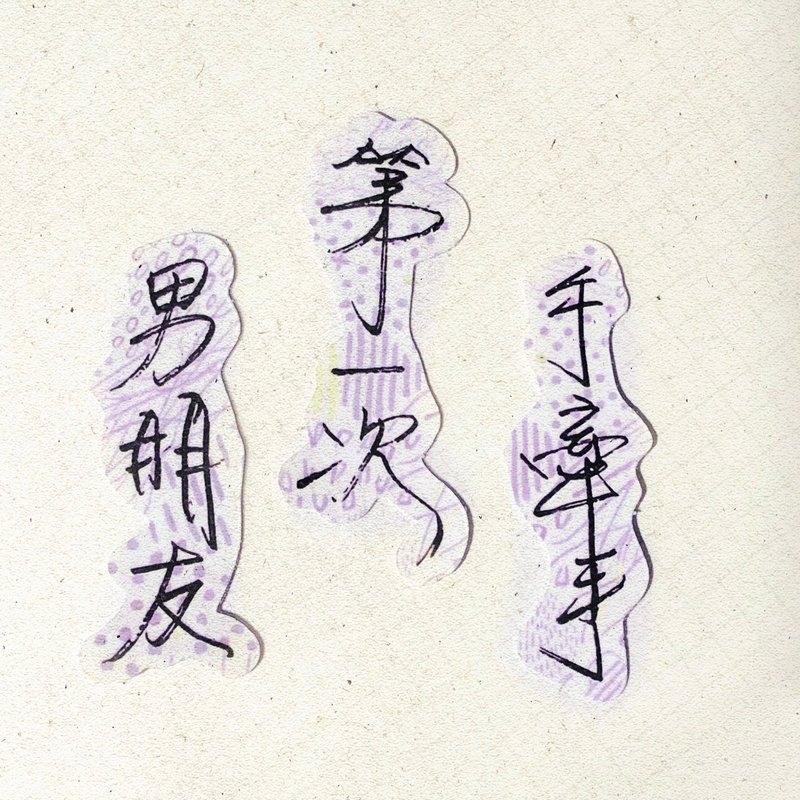 手牽手
第一次
男朋友